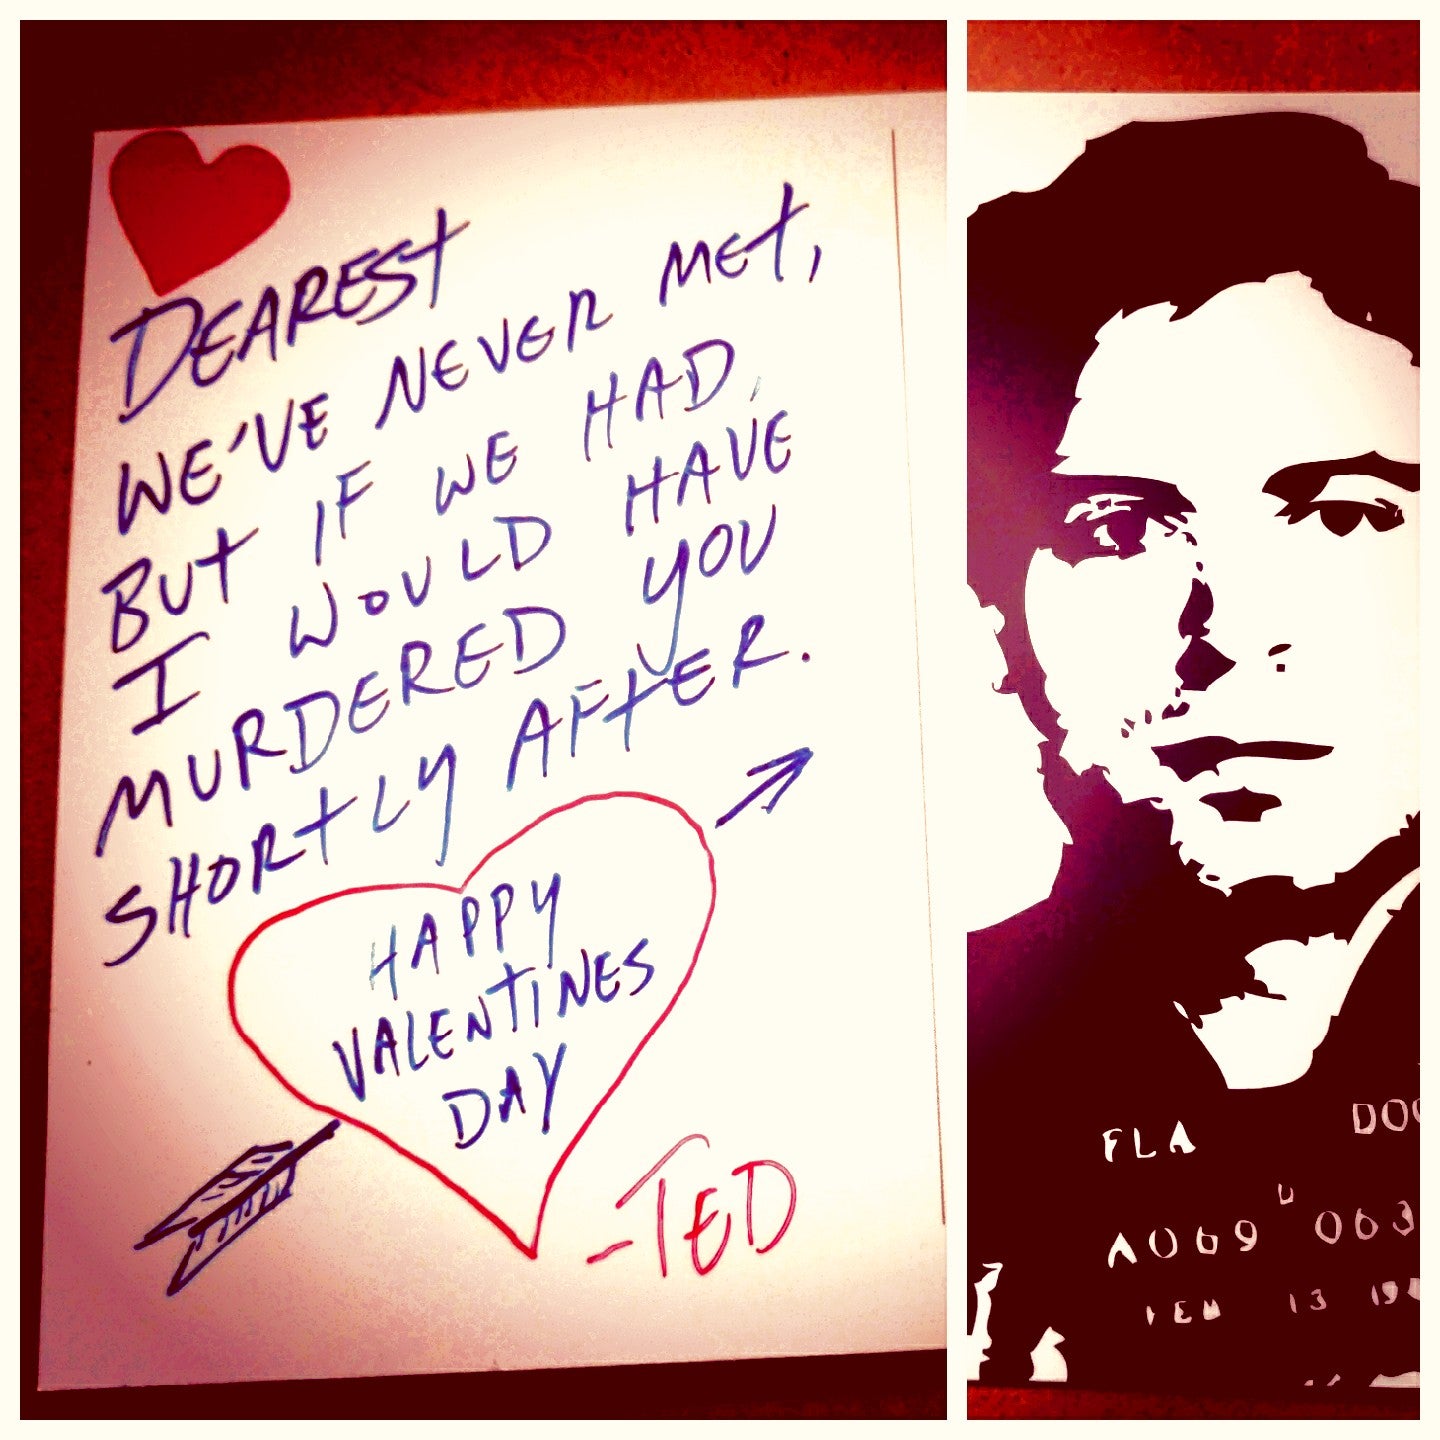 DEAREST
WE'VE NEVER MET,
BUT IF WE HAD,
I WOULD HAVE
MURDERED YOU
SHORTLY AFTER.
HAPPY
VALENTINES
DAY
-TED
FLA
A069 063
13